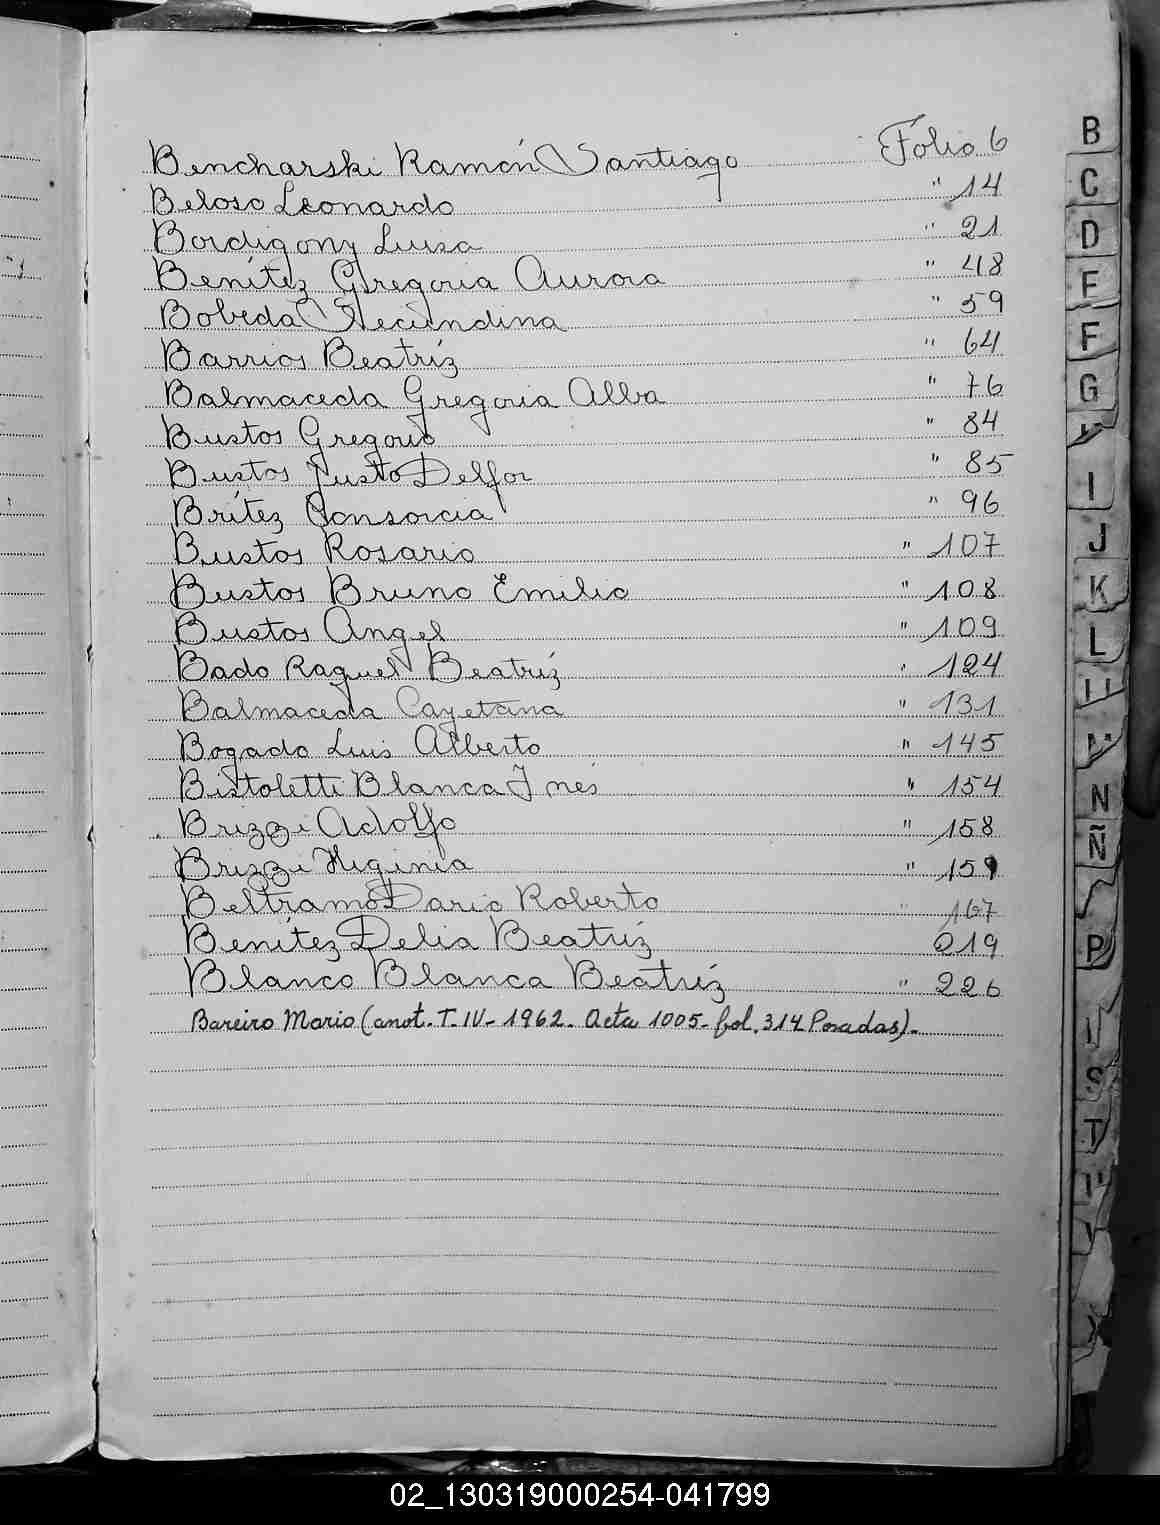 Bencharski Ramón Santiago Folio 6
Beloso Leonardo " 14
Bordigony Luisa " 21
Benítez Gregoria Aurora " 48
Bobeda Secundina " 59
Barrios Beatríz " 64
Balmaceda Gregoria Alba " 76
Bustos Gregorio " 84
Bustos Justo Delfor " 85
Brítez Consorcia " 96
Bustos Rosario " 107
Bustos Bruno Emilio " 108
Bustos Angel " 109
Bado Raquel Beatríz " 124
Balmaceda Cayetana " 131
Bogado Luis Alberto " 145
Bistoletti Blanca Inés " 154
Brizzi Adolfo " 158
Brizzi Higinia " 159
Beltramo Dario Roberto " 167
Benítez Delia Beatríz 219
Blanco Blanca Beatríz " 226
Bareiro Mario (anot. T. IV - 1962. Acta 1005 - fol. 314 Posadas).-
B
C
D
E
F
G
I
J
K
L
M
N
Ñ
P
S
T
02_130319000254-041799